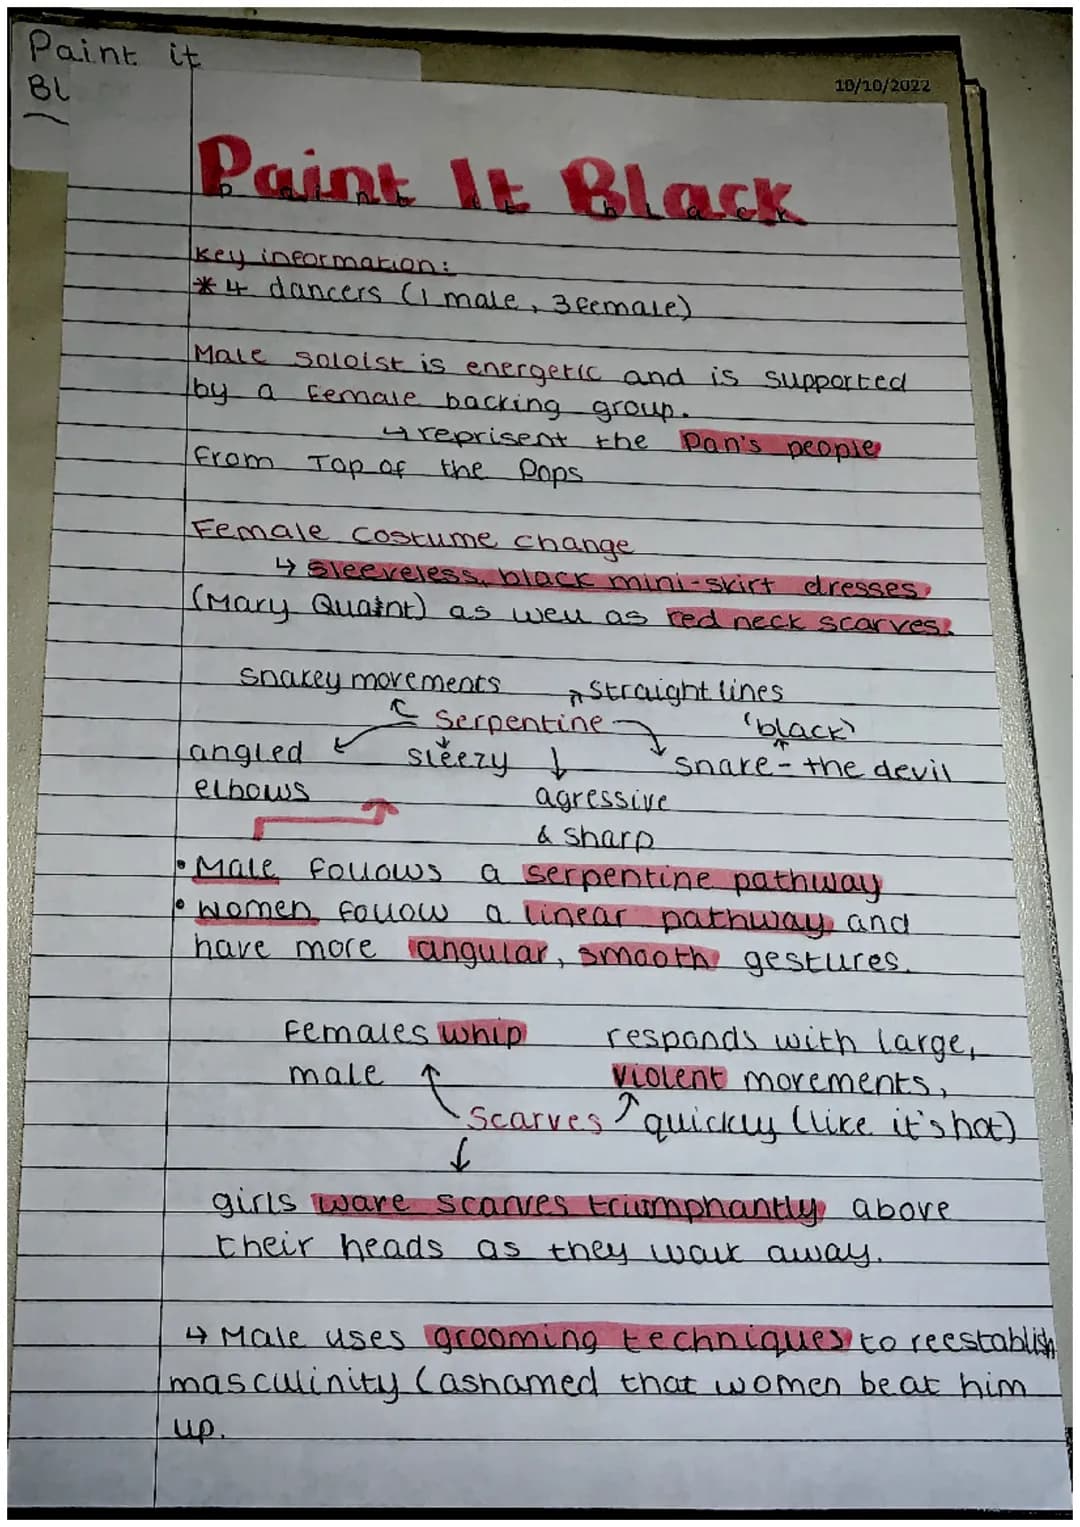 Paint it
Bl
10/10/2022
Paint It Black
Paint It Black
Key information:
* 4 dancers (1 male, 3 female)
Male soloist is energetic and is supported
by a female backing group.
↳ reprisent the Pan's people
from Top of the Pops
Female costume change
↳ sleeveless, black mini-skirt dresses
(Mary Quaint) as well as red neck scarves.
snakey movements
straight lines
Serpentine
'black'
angled
sleezy
snake - the devil
elbows
agressive
& sharp
• Male follows a serpentine pathway
• women follow a linear pathway and
have more angular, smooth gestures.
Females whip
responds with large,
male
violent movements,
Scarves
quickly (like it's hot)
girls wave scarves triumphantly above
their heads as they walk away.
↳ Male uses grooming techniques to reestablish
masculinity (ashamed that women beat him
up.